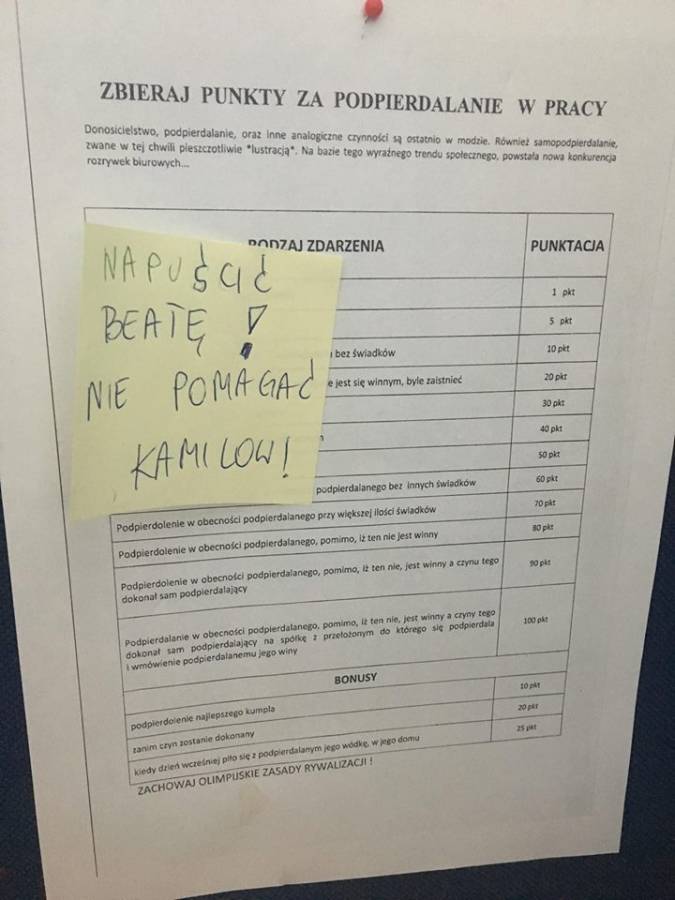 ZBIERAJ PUNKTY ZA PODPIERDALANIE W PRACY
Donosicielstwo, podpierdalanie, oraz inne analogiczne czynności są ostatnio w modzie. Również samopodpierdalanie,
zwane w tej chwili pieszczotliwie *lustracją*. Na bazie tego wyraźnego trendu społecznego, powstała nowa konkurencja
rozrywek biurowych...
RODZAJ ZDARZENIA PUNKTACJA
NAPUŚCIĆ
BEATĘ!
NIE POMAGAĆ
KAMILOW!
1 pkt
5 pkt
bez świadków 10 pkt
jest się winnym, byle zaistnieć 20 pkt
30 pkt
40 pkt
50 pkt
podpierdalanego bez innych świadków 60 pkt
Podpierdolenie w obecności podpierdalanego przy większej ilości świadków 70 pkt
Podpierdolenie w obecności podpierdalanego, pomimo, iż ten nie jest winny 80 pkt
Podpierdolenie w obecności podpierdalanego, pomimo, iż ten nie, jest winny a czynu tego
dokonał sam podpierdalający 90 pkt
Podpierdalanie w obecności podpierdalanego, pomimo, iż ten nie, jest winny a czyny tego
dokonał sam podpierdalający na spółkę z przełożonym do którego się podpierdala
i wmówienie podpierdalanemu jego winy 100 pkt
BONUSY
podpierdolenie najlepszego kumpla 10 pkt
zanim czyn zostanie dokonany 20 pkt
kiedy dzień wcześniej piło się z podpierdalanym jego wódkę, w jego domu 25 pkt
ZACHOWAJ OLIMPIJSKIE ZASADY RYWALIZACJI !